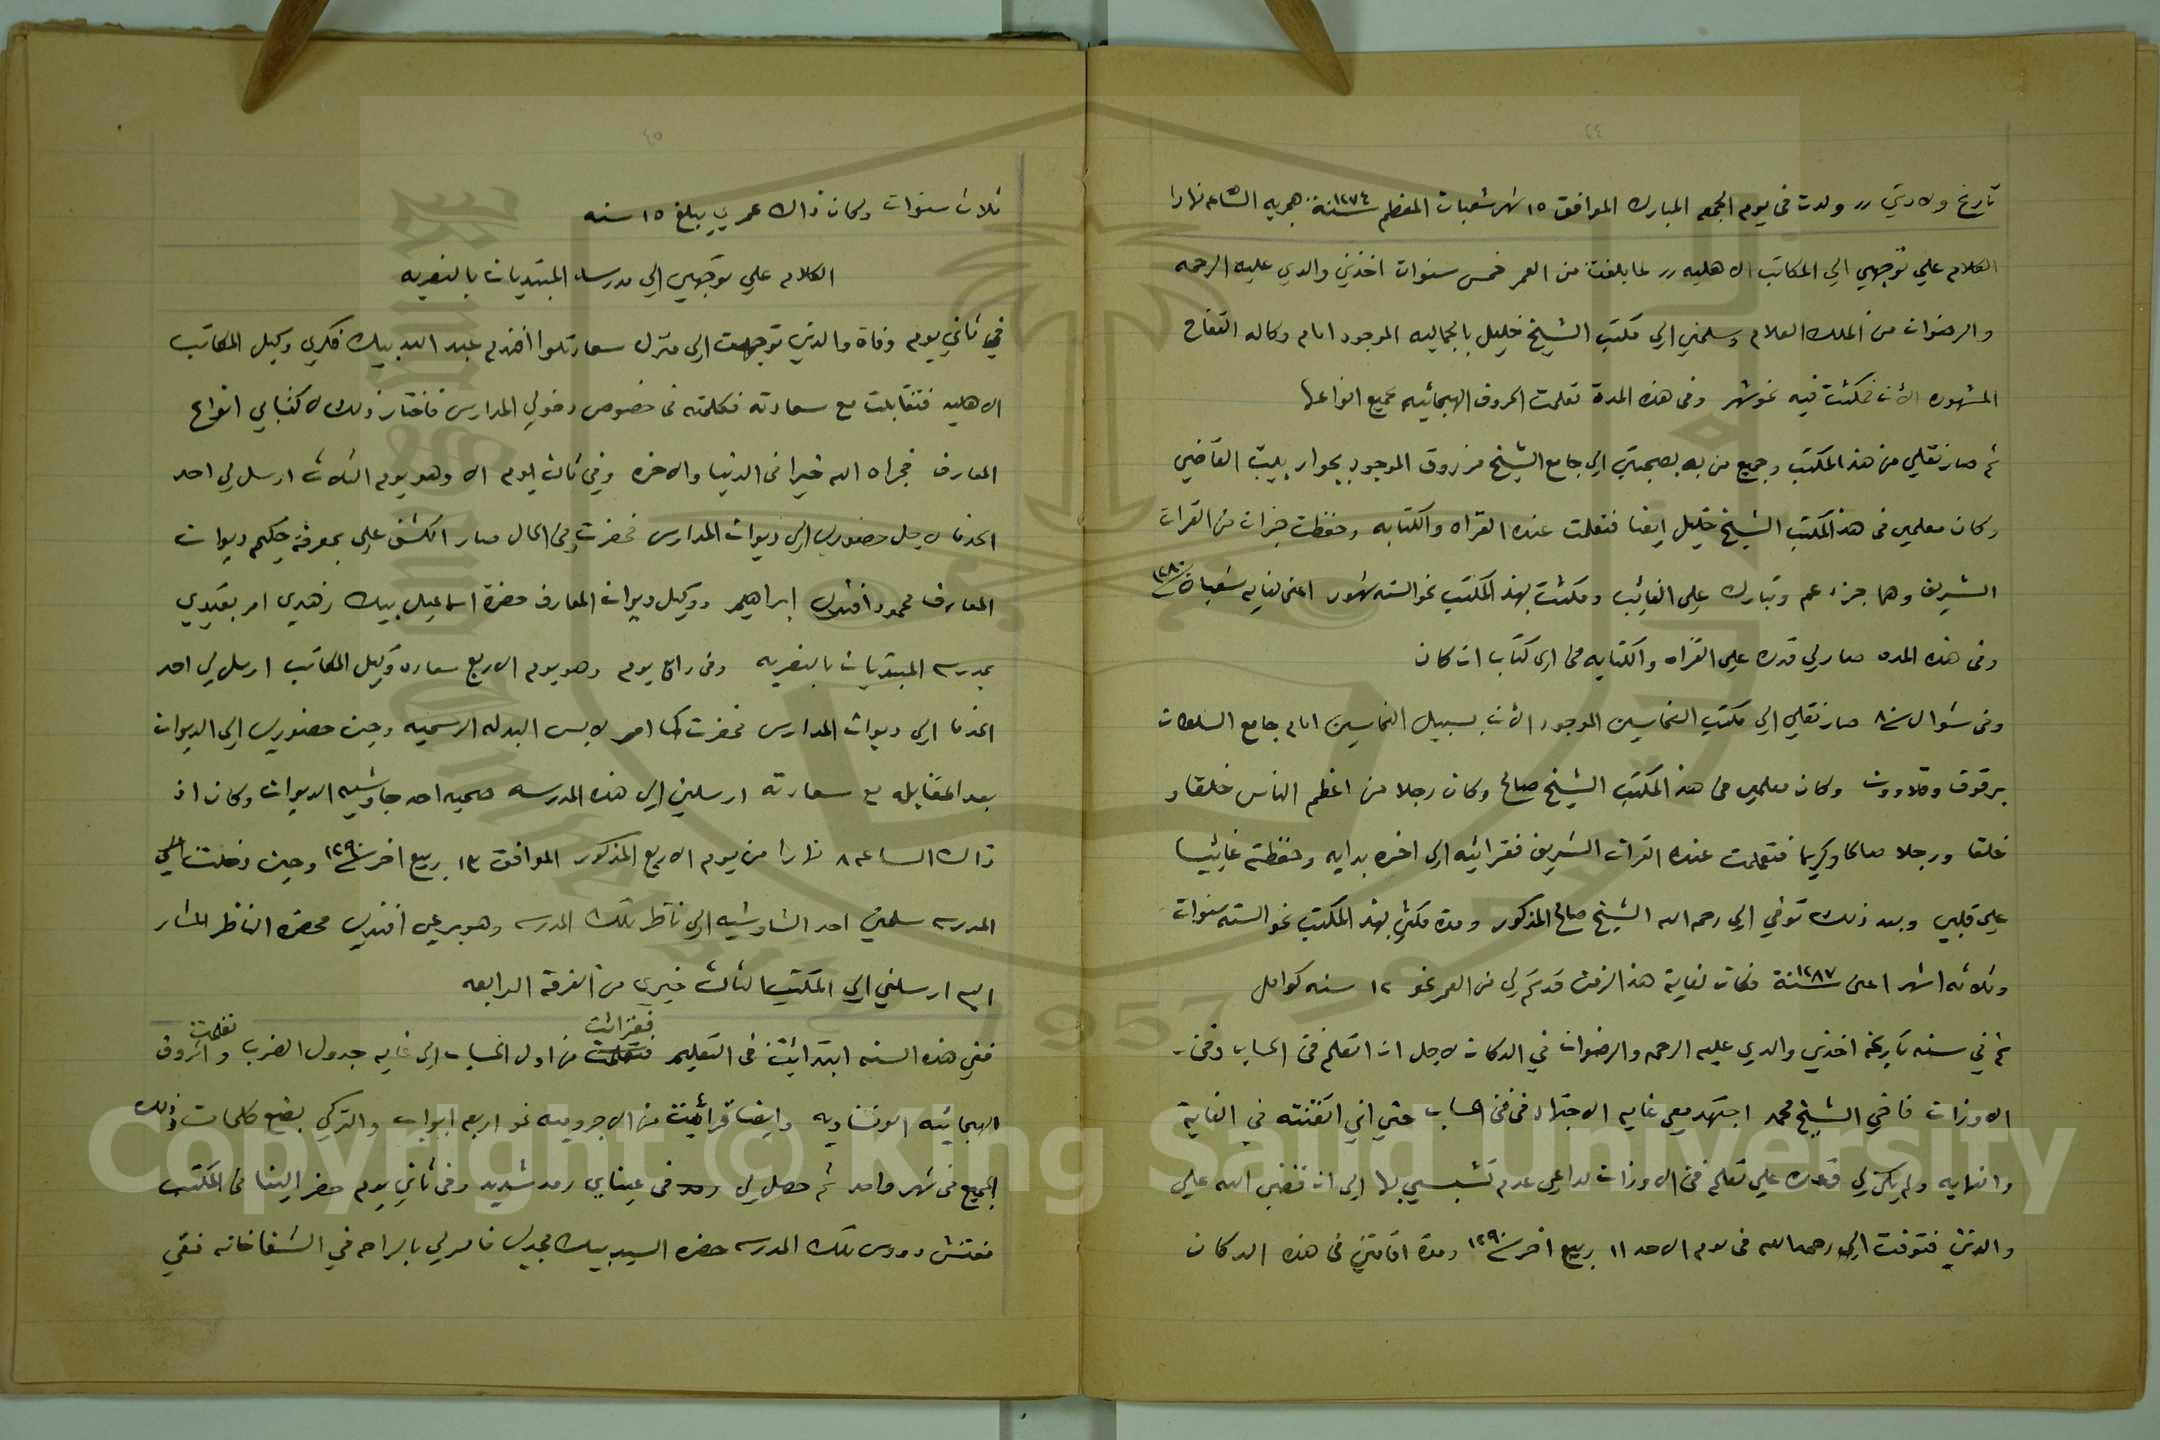 تاريخ ولادتي ,, ولدت في يوم الجمعه المبارك الموافق ١٥ شهر شعبان المعظم سنة ١٢٧٤ هجريه الساعه نهارا
الكلام علي توجهي الي المكاتب الاهليه ,, لما بلغت من العمر خمس سنوات اخذني والدي عليه الرحمه
والرضوان من الملك العلام وسلمني الي مكتب الشيخ خليل بالجماليه الموجود امام وكاله التفاح
المشهوره الان فمكثت فيه نحو شهر وفي هذه المدة تعلمت الحروف الهجائيه بجميع انواعها
ثم صار نقلي من هذا المكتب وجميع من به بصحبتي الي جامع الشيخ مرزوق الموجود بجوار بيت القاضي
وكان معلمي في هذا المكتب الشيخ خليل ايضا فتعلمت عنده القراه والكتابه وحفظت جزان من القران
الشريف وهما جزء عم وتبارك علي الغائب ومكثت بهذا المكتب نحو السته شهور اعني لغايه شعبان سنة ١٢٨٠
وفي هذه المده صار لي قدره علي القراه والكتابه في اي كتاب ان كان
وفي شوال سنة ٨٠ صار نقلي الي مكتب النحاسين الموجود الان بسبيل النحاسين امام جامع السلطان
برقوق وقلاوون وكان معلمي في هذا المكتب الشيخ صالح وكان رجلا من اعظم الناس خلقا و
خلقا ورجلا صالحا وكريما فتعلمت عنده القران الشريف فقرائته الي اخره بدايه وحفظته غائبا
علي قلبي وبعد ذلك توفي الي رحمه الله الشيخ صالح المذكور ومدة مكثي بهذا المكتب نحو السته سنوات
وثلاثه اشهر اعني سنة ١٢٨٧ فكان لغاية هذا الزمن قد تم لي من العمر نحو ١٢ سنه كوامل
ثم في سنه تاريخه اخذني والدي عليه الرحمه والرضوان في الدكان لاجل ان اتعلم فن الحساب وفن
الاوزان فاخي الشيخ محمد اجتهد معي غايه الاجتهاد في فن الحساب حتي اني اتقنته في الغاية
والنهايه ولم يكن لي قدره علي تعلم فن الاوزان لداعي عدم تشبسي بها الي ان قضي الله علي
والدتي فتوفت الي رحمه الله في يوم الاحد ١١ ربيع اخر سنة ١٢٩٠ ومدة اقامتي في هذه الدكان
ثلاث سنوات وكان ذاك عمري يبلغ ١٥ سنه
الكلام علي توجهي الي مدرسة المبتديان بالنصريه
في ثاني يوم وفاة والدتي توجهت الي منزل سعادتلوا افندم عبد الله بيك فكري وكيل المكاتب
الاهليه فتقابلت مع سعادته فكلمته في خصوص دخولي المدارس فاختار ذلك لاكتسابي انواع
المعارف فجزاه الله خيرا في الدنيا والاخره وفي ثالث يوم الا وهو يوم الثلاث ارسل لي احد
الخدما لاجل حضوري الي ديوان المدارس فحضرت وفي الحال صار الكشف علي بمعرفة حكيم ديوان
المعارف محمود افندي ابراهيم ووكيل ديوان المعارف حضرة اسماعيل بيك زهدي امر بقيدي
بمدرسه المبتديان بالنصريه وفي رابع يوم وهو يوم الاربع سعاده وكيل المكاتب ارسل لي احد
الخدما الي ديوان المدارس فحضرت كما امر لابس البدله الرسميه وحين حضوري الي الديوان
بعد المقابله مع سعادته ارسلني الي هذه المدرسه صحبه احد جاوشيه الديوان وكان اذ
ذاك الساعه ٨ نهارا من يوم الاربع المذكور الموافق ١٣ ربيع اخر سنة ١٢٩٠ وحين دخلت الي
المدرسه سلمني احد الشاوشيه الي ناظر تلك المدرسه وهو برعي افندي فحضره الناظر المشار
اليه ارسلني الي المكتب الثالث خيري من الفرقة الرابعه
ففي هذه السنه ابتدائت في التعليم فقرائت من اول الحساب الي غايه جدول الضرب وتعلمت الحروف
الهجائيه الفرنساويه وايضا قرائت من الاجروميه نحو اربعه ابواب والتركي بضع كلمات وذلك
الجميع في شهر واحد ثم حصل لي رمد في عيناي رمد شديد وفي ثاني يوم حضر الينا في المكتب
مفتش دروس تلك المدرسه حضره السيد بيك مجدي فامر لي بالراحه في الشفاخانه ففي